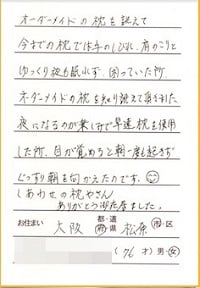 オーダーメイドの枕を誂えて
今までの枕では手のしびれ、肩のこりと
ゆっくり夜も眠れず、困っていた所
オーダーメイドの枕を知り誂えて頂きました
夜になるのが楽しみで早速、枕を使用
した所、目が覚めると朝一度も起きず
ぐっすり朝を向かえたのです。
しあわせの枕やさん
ありがとう御座居ました
お住まい 大阪 都・道・府・県 松原 市・区
(76才)男・女